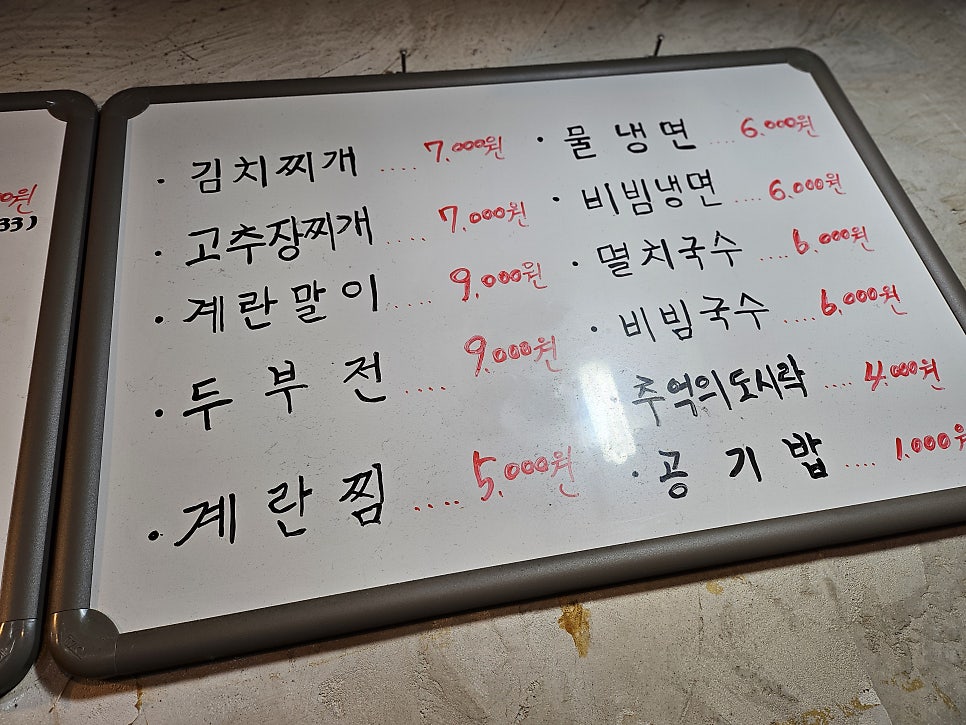 0원
33)
· 김치찌개 .... 7.000원
· 고추장찌개 .... 7.000원
· 계란말이 .... 9.000원
· 두부전 .... 9.000원
· 계란찜 .... 5.000원
· 물냉면 .... 6.000원
· 비빔냉면 .... 6.000원
· 멸치국수 .... 6.000원
· 비빔국수 .... 6.000원
· 추억의도시락 .... 4.000원
· 공기밥 .... 1.000원